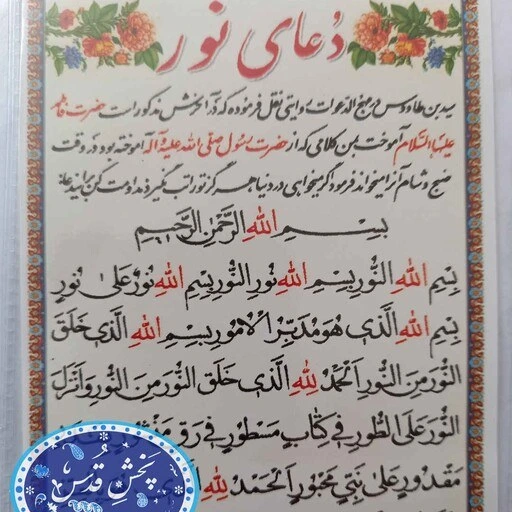 دُعای نور
سید بن طاووس در مهج الدعوات روایتی نقل فرموده که در آخرش مذکور است حضرت فاطمه
علیها السلام آموخت بمن کلامی که از حضرت رسول صلی الله علیه و آله آموخته بود و در وقت
صبح و شام آنرا میخواند فرمود اگر میخواهی در دنیا هرگز تو را تب نگیرد مداومت کن بر آن دعا
بِسْمِ اللهِ الرَّحْمٰنِ الرَّحِیمِ
بِسْمِ اللهِ النُّورِ بِسْمِ اللهِ نُورِ النُّورِ بِسْمِ اللهِ نُورٌ عَلیٰ نُورٍ
بِسْمِ اللهِ الَّذی هُوَ مُدَبِّرُ الْاُمُورِ بِسْمِ اللهِ الَّذی خَلَقَ
النُّورَ مِنَ النُّورِ اَلْحَمْدُ لِلهِ الَّذی خَلَقَ النُّورَ مِنَ النُّورِ وَاَنْزَلَ
النُّورَ عَلَی الطُّورِ فی کِتابٍ مَسْطُورٍ فی رَقٍّ
مَقْدُورٍ عَلیٰ نَبِیٍّ مَحْبُورٍ اَلْحَمْدُ لِلهِ
پخش قُدس